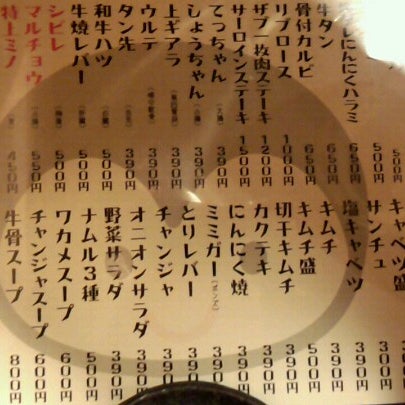 にんにくハラミ 650円
牛タン 650円
骨付カルビ 650円
リブロース 1000円
ザブ一枚肉ステーキ 1200円
サーロインステーキ 1500円
てっちゃん 390円
しょうちゃん 390円
上ギアラ 390円
ウルテ 390円
タン先 390円
和牛ハツ 500円
牛焼レバー 500円
シビレ 500円
マルチョウ 550円
特上ミノ 450円
キャベツ盛
サンチュ 300円
塩キャベツ 390円
キムチ 390円
キムチ盛 500円
切干キムチ 390円
カクテキ 390円
にんにく焼 390円
ミミガー(ポンズ)
とりレバー
チャンジャ 390円
オニオンサラダ 390円
野菜サラダ 390円
ナムル3種 500円
ワカメスープ 600円
チャンジャスープ 600円
牛骨スープ 800円